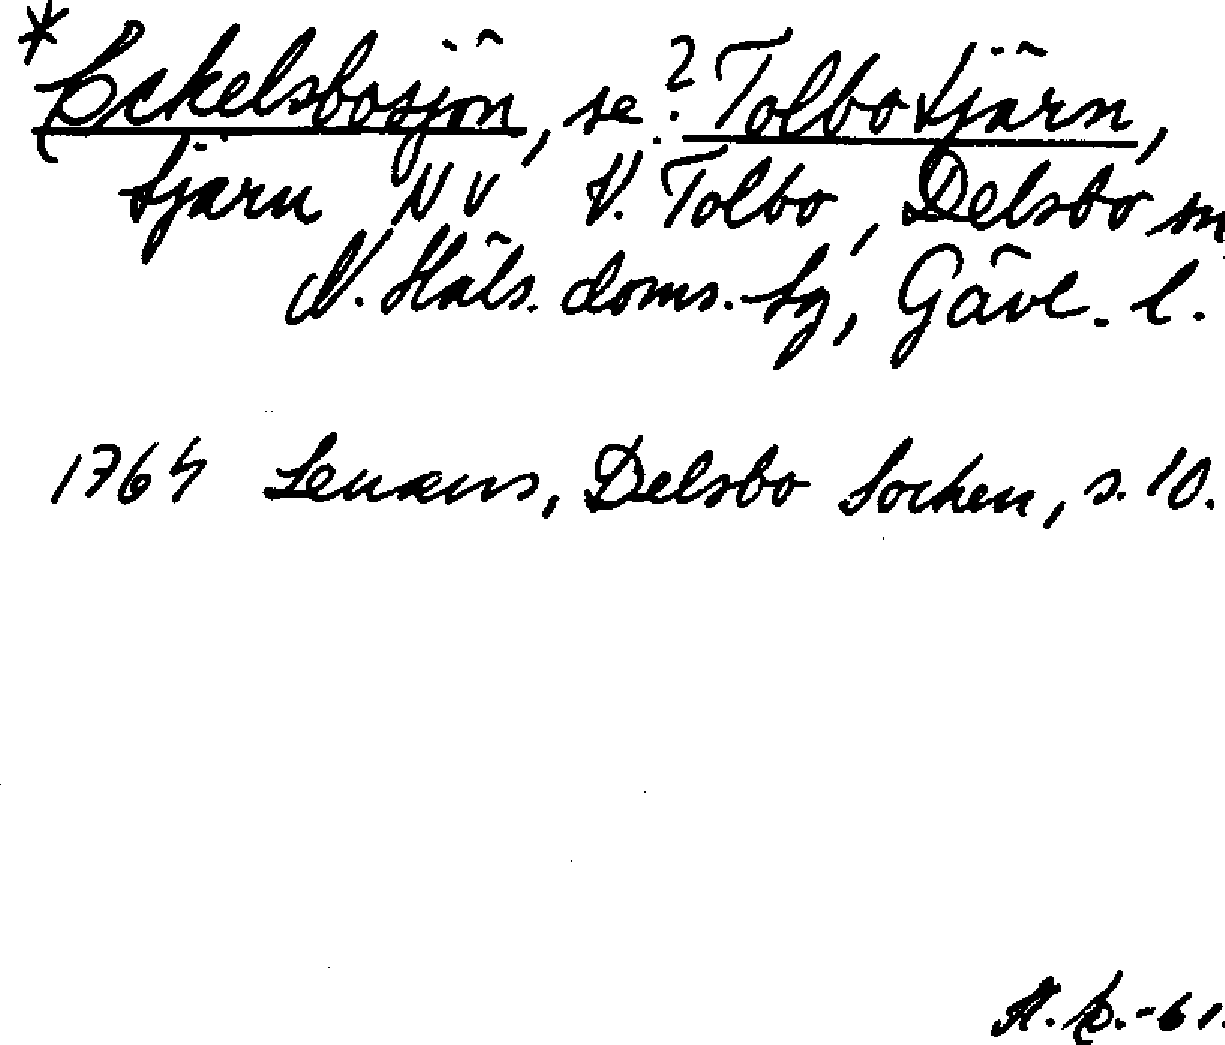 *Eckelsbosjön, se ? Tolbotjärn,
tjärn NV V. Tolbo, Delsbo sn
N. Häls. doms.-sg, Gävl. l.
1764 Lenæus, Delsbo Socken, s. 10.
-61.